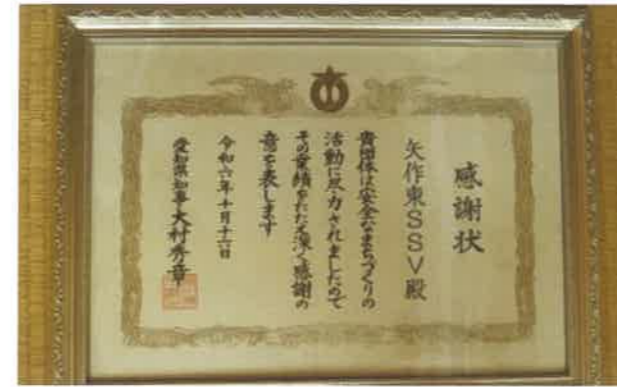 感謝状
矢作東SSV殿
貴団体は安全なまちづくりの
活動に尽力されましたので
その業績をたたえ深く感謝の
意を表します
令和六年十月十六日
愛知県知事大村秀章